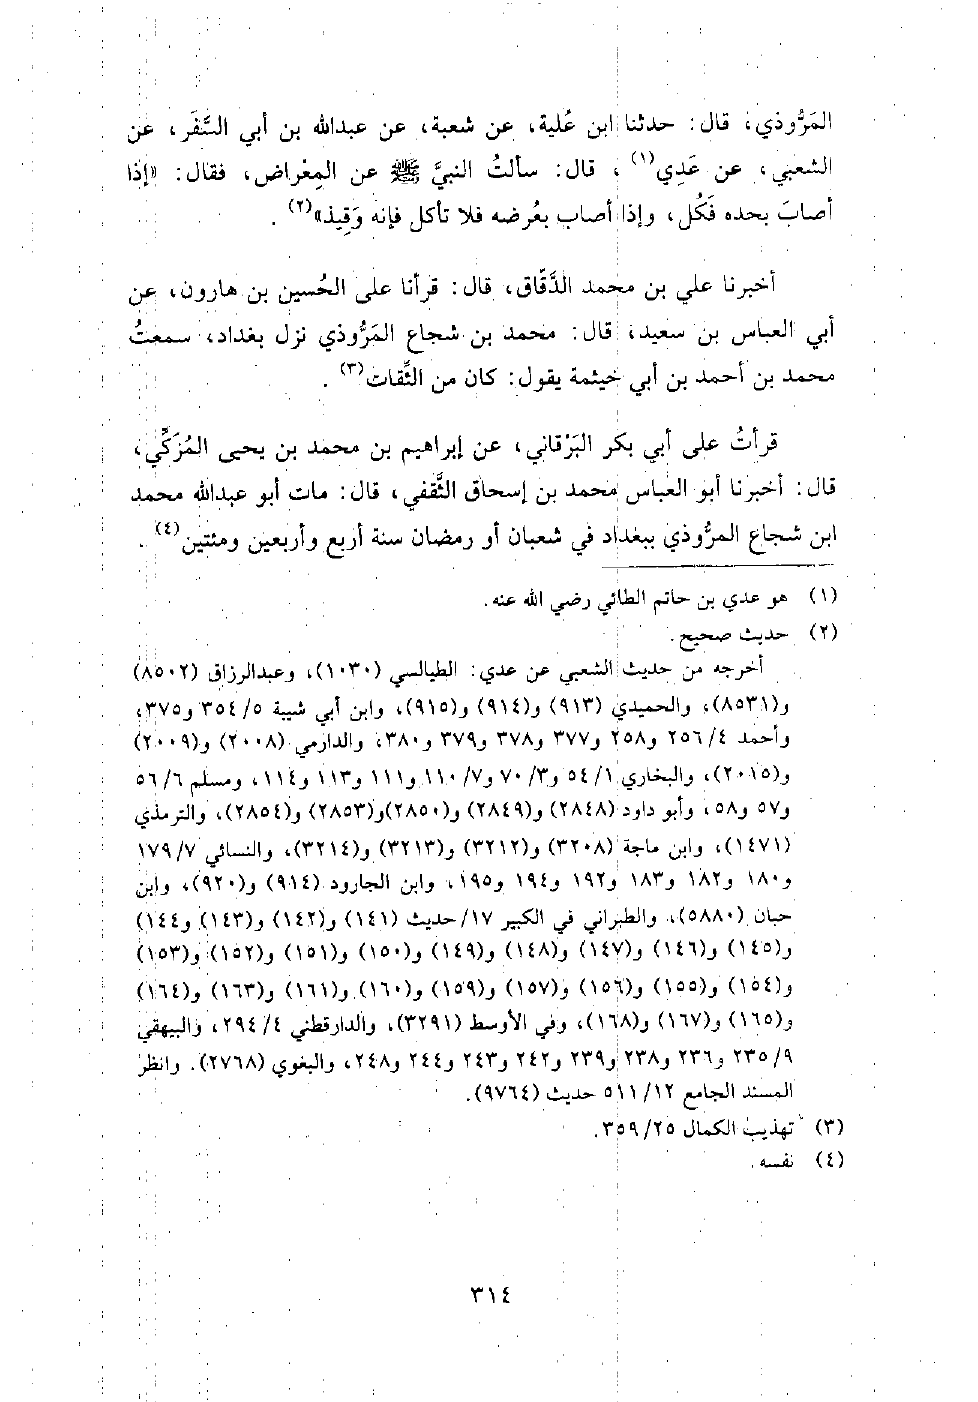 المَرُّوذي، قال: حدثنا ابن عُلية، عن شعبة، عن عبدالله بن أبي السَّفَر، عن
الشعبي، عن عَدِي(١)، قال: سألتُ النبيَّ ﷺ عن المِعْراض، فقال: «إذا
أصابَ بحده فَكُل، وإذا أصاب بعُرضه فلا تأكل فإنه وَقِيذ»(٢).
أخبرنا علي بن محمد الدَّقاق، قال: قرأنا على الحُسين بن هارون، عن
أبي العباس بن سعيد، قال: محمد بن شجاع المَرُّوذي نزل بغداد، سمعتُ
محمد بن أحمد بن أبي خيثمة يقول: كان من الثَّقات(٣).
قرأتُ على أبي بكر البَرْقاني، عن إبراهيم بن محمد بن يحيى المُزَكِّي،
قال: أخبرنا أبو العباس محمد بن إسحاق الثَّقفي، قال: مات أبو عبدالله محمد
ابن شجاع المرُّوذي ببغداد في شعبان أو رمضان سنة أربع وأربعين ومئتين(٤).
(١) هو عدي بن حاتم الطائي رضي الله عنه.
(٢) حديث صحيح.
أخرجه من حديث الشعبي عن عدي: الطيالسي (١٠٣٠)، وعبدالرزاق (٨٥٠٢)
و(٨٥٣١)، والحميدي (٩١٣) و(٩١٤) و(٩١٥)، وابن أبي شيبة ٥/ ٣٥٤ و٣٧٥،
وأحمد ٤/ ٢٥٦ و٢٥٨ و٣٧٧ و٣٧٨ و٣٧٩ و٣٨٠، والدارمي (٢٠٠٨) و(٢٠٠٩)
و(٢٠١٥)، والبخاري ١/ ٥٤ و٣/ ٧٠ و٧/ ١١٠ و١١١ و١١٣ و١١٤، ومسلم ٦/ ٥٦
و٥٧ و٥٨، وأبو داود (٢٨٤٨) و(٢٨٤٩) و(٢٨٥٠)و(٢٨٥٣) و(٢٨٥٤)، والترمذي
(١٤٧١)، وابن ماجة (٣٢٠٨) و(٣٢١٢) و(٣٢١٣) و(٣٢١٤)، والنسائي ٧/ ١٧٩
و١٨٠ و١٨٢ و١٨٣ و١٩٢ و١٩٤ و١٩٥، وابن الجارود (٩١٤) و(٩٢٠)، وابن
حبان (٥٨٨٠)، والطبراني في الكبير ١٧/حديث (١٤١) و(١٤٢) و(١٤٣) و١٤٤)
و(١٤٥) و(١٤٦) و(١٤٧) و(١٤٨) و(١٤٩) و(١٥٠) و(١٥١) و(١٥٢) و(١٥٣)
و(١٥٤) و(١٥٥) و(١٥٦) و(١٥٧) و(١٥٩) و(١٦٠) و(١٦١) و(١٦٣) و(١٦٤)
و(١٦٥) و(١٦٧) و(١٦٨)، وفي الأوسط (٣٢٩١)، والدارقطني ٤/ ٢٩٤، والبيهقي
٩/ ٢٣٥ و٢٣٦ و٢٣٨ و٢٣٩ و٢٤٢ و٢٤٣ و٢٤٤ و٢٤٨، والبغوي (٢٧٦٨). وانظر
المسند الجامع ١٢/ ٥١١ حديث (٩٧٦٤).
(٣) تهذيب الكمال ٢٥/ ٣٥٩.
(٤) نفسه.
٣١٤